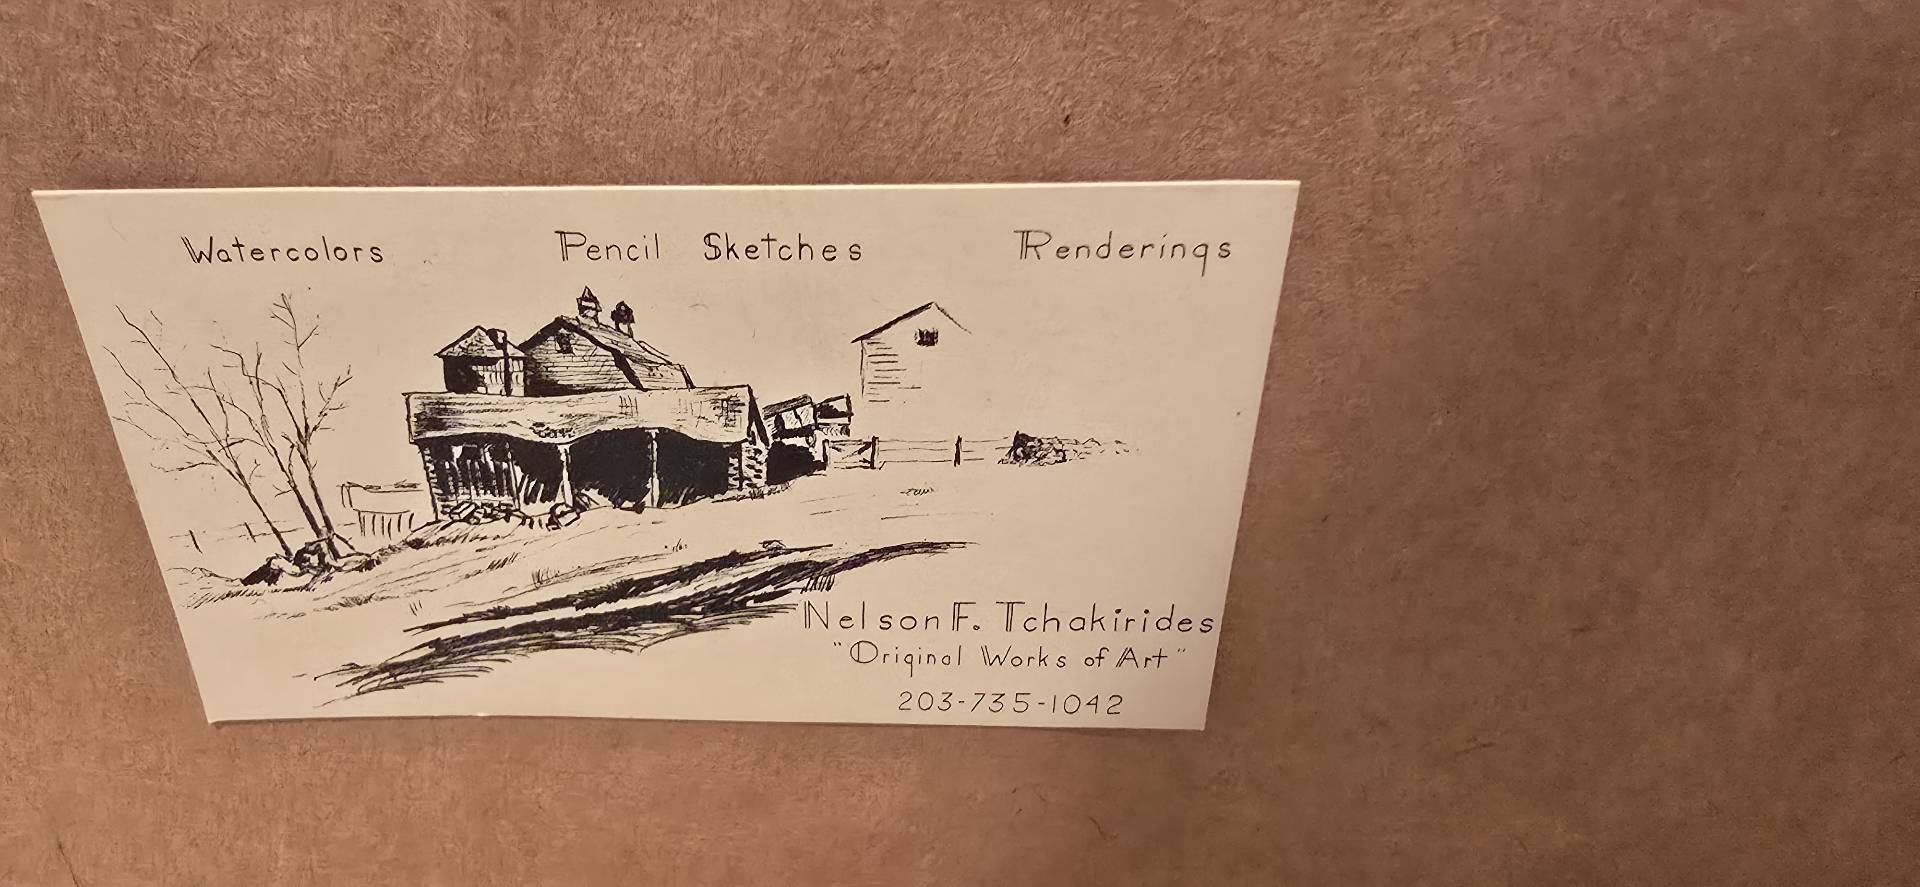 Watercolors Pencil Sketches Renderings
Nelson F. Tchakirides
"Original Works of Art"
203-735-1042